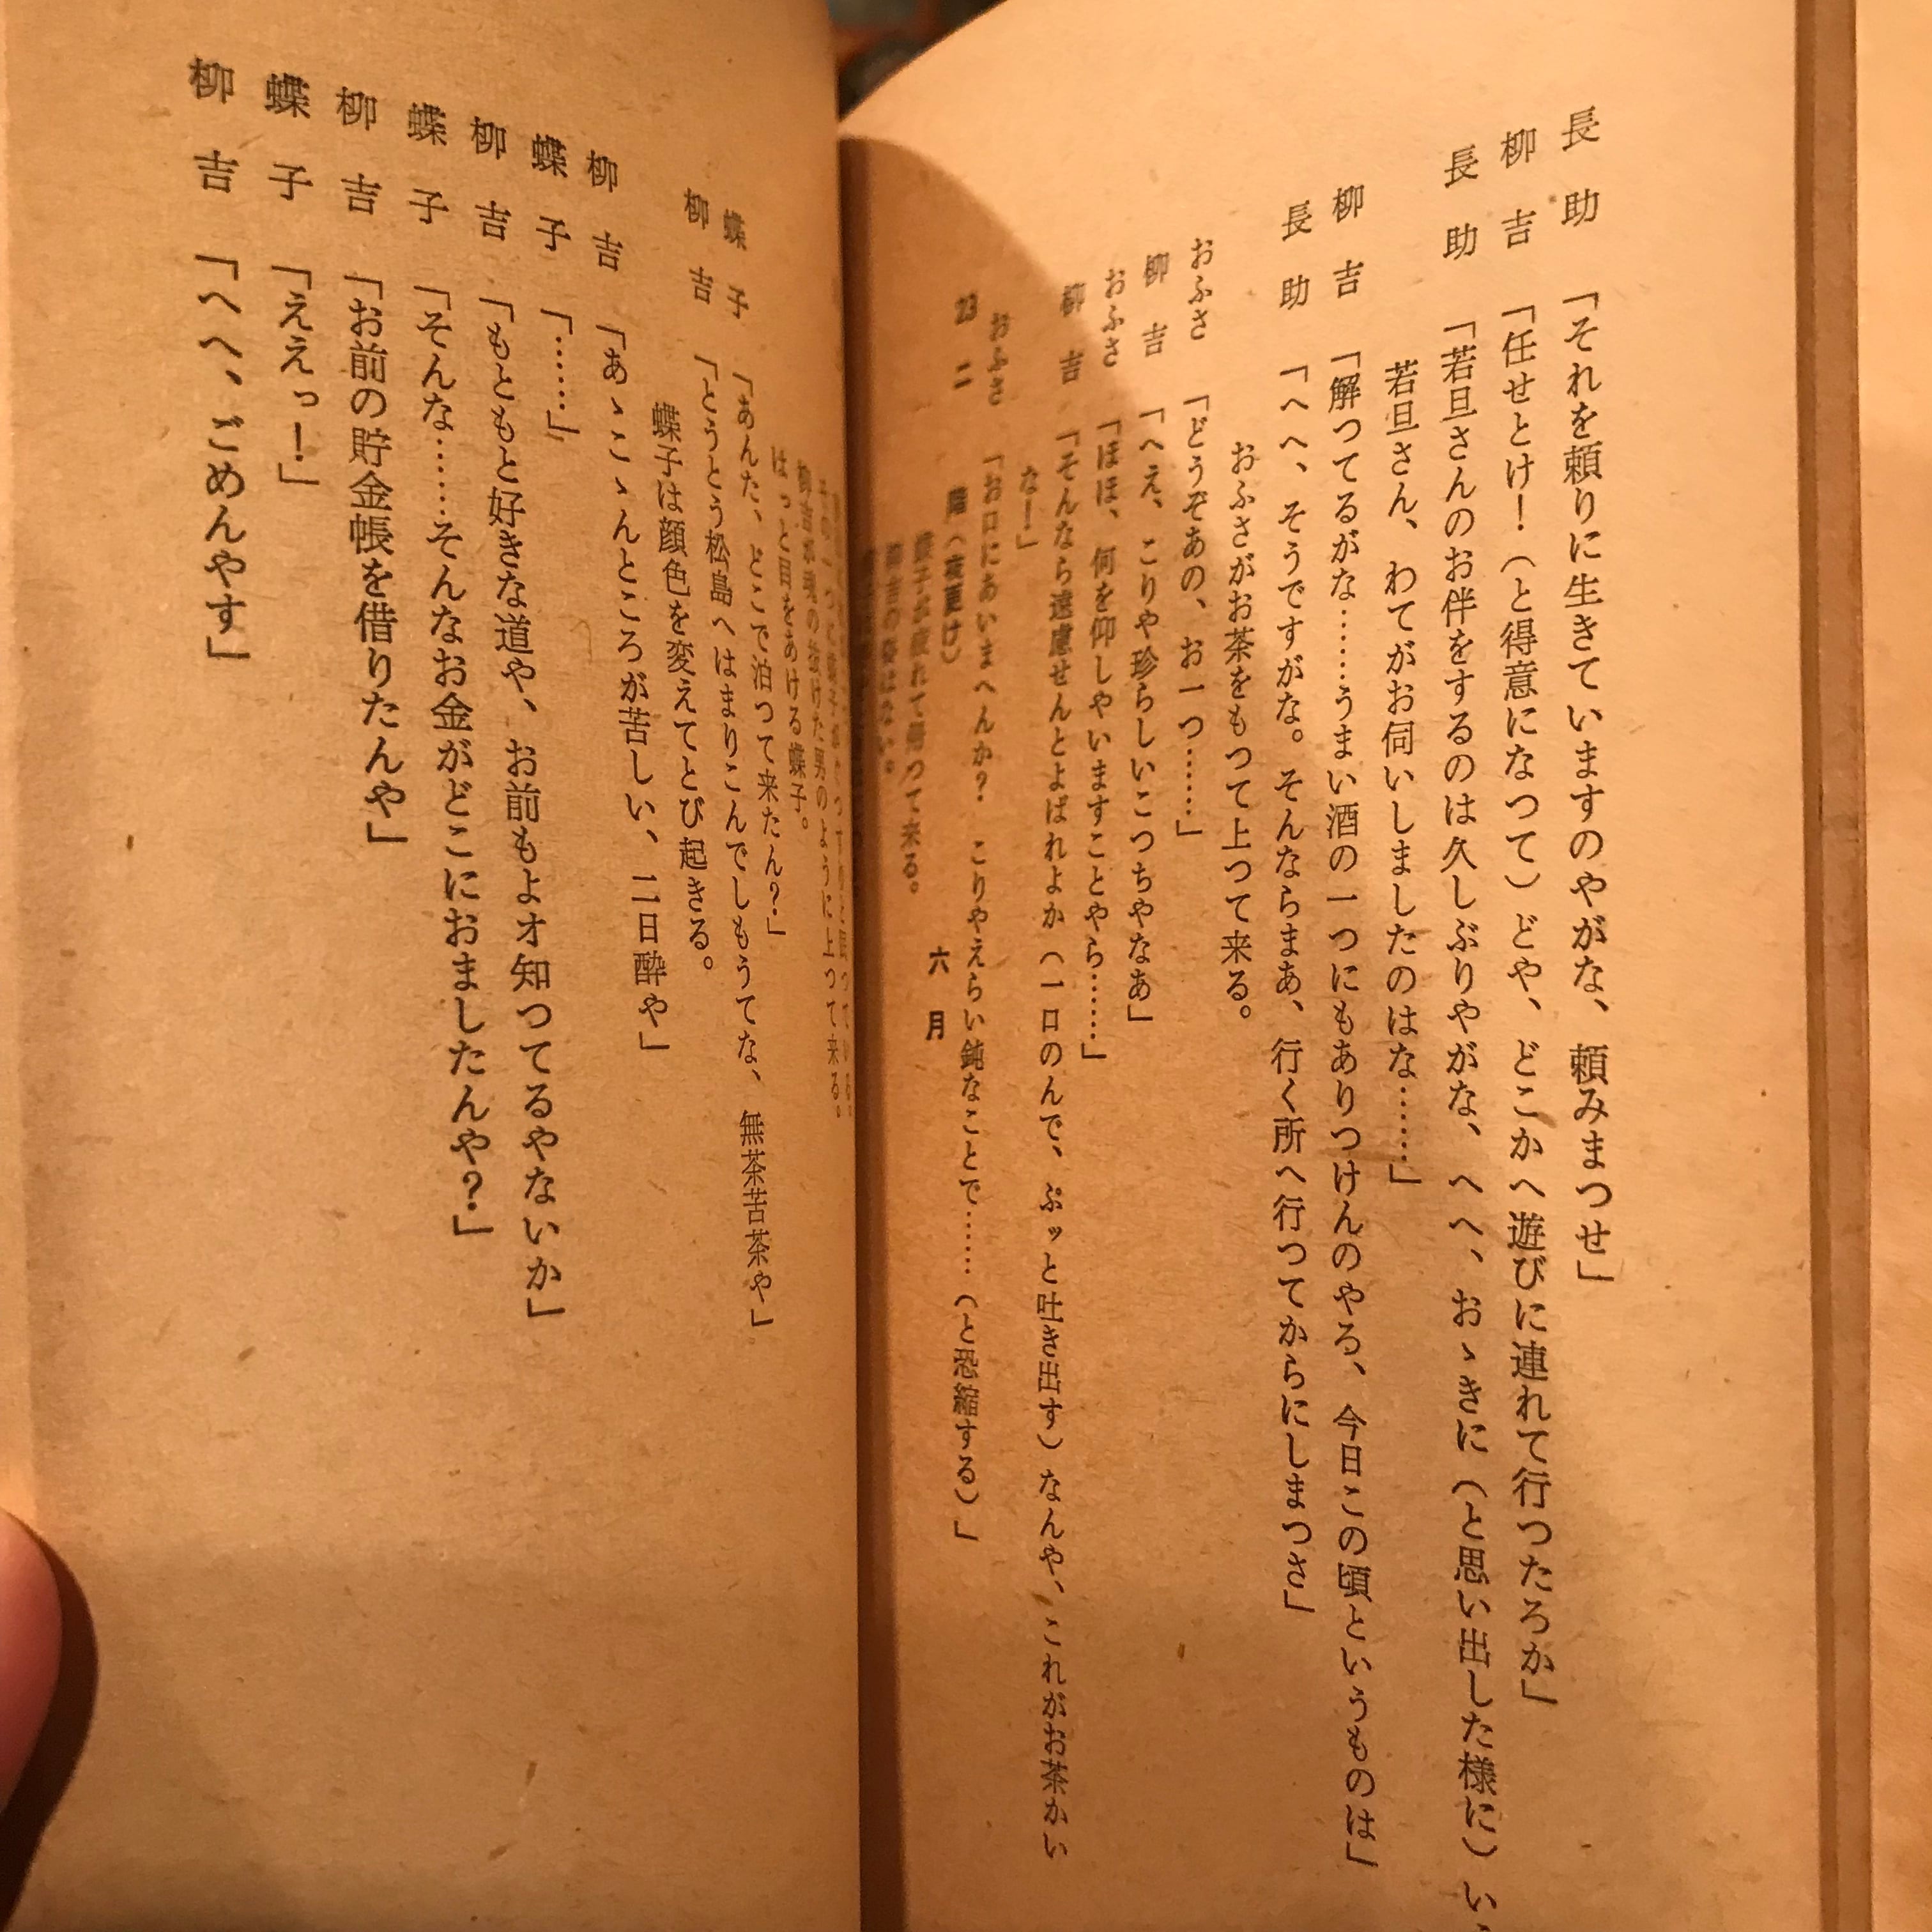 長助「それを頼りに生きていますのやがな、頼みまつせ」
柳吉「任せとけ！（と得意になつて）どや、どこかへ遊びに連れて行つたろか」
長助「若旦さんのお伴をするのは久しぶりやがな、へへ、おゝきに（と思い出した様に）い
若旦さん、わてがお伺いしましたのはな……」
柳吉「解つてるがな……うまい酒の一つにもありつけんのやろ、今日この頃というものは」
長助「へへ、そうですがな。そんならまあ、行く所へ行つてからにしまつさ」
おふさがお茶をもつて上つて来る。
おふさ「どうぞあの、お一つ……」
柳吉「へえ、こりや珍らしいこつちやなあ」
おふさ「ほほ、何を仰しやいますことやら……」
柳吉「そんなら遠慮せんとよばれよか（一口のんで、ぷッと吐き出す）なんや、これがお茶かい
な！」
おふさ「お口にあいまへんか？　こりやえらい鈍なことで……（と恐縮する）」
23　二階（夜更け）　六月
蝶子が疲れて帰つて来る。
柳吉の姿はない。
柳吉が魂の抜けた男のように上つて来る。
はつと目をあける蝶子。
蝶子「あんた、どこで泊つて来たん？」
柳吉「とうとう松島へはまりこんでしもうてな、無茶苦茶や」
蝶子は顔色を変えてとび起きる。
柳吉「あゝこゝんところが苦しい、二日酔や」
蝶子「……」
柳吉「もともと好きな道や、お前もよオ知つてるやないか」
蝶子「そんな……そんなお金がどこにおましたんや？」
柳吉「お前の貯金帳を借りたんや」
蝶子「ええっ！」
柳吉「へへ、ごめんやす」